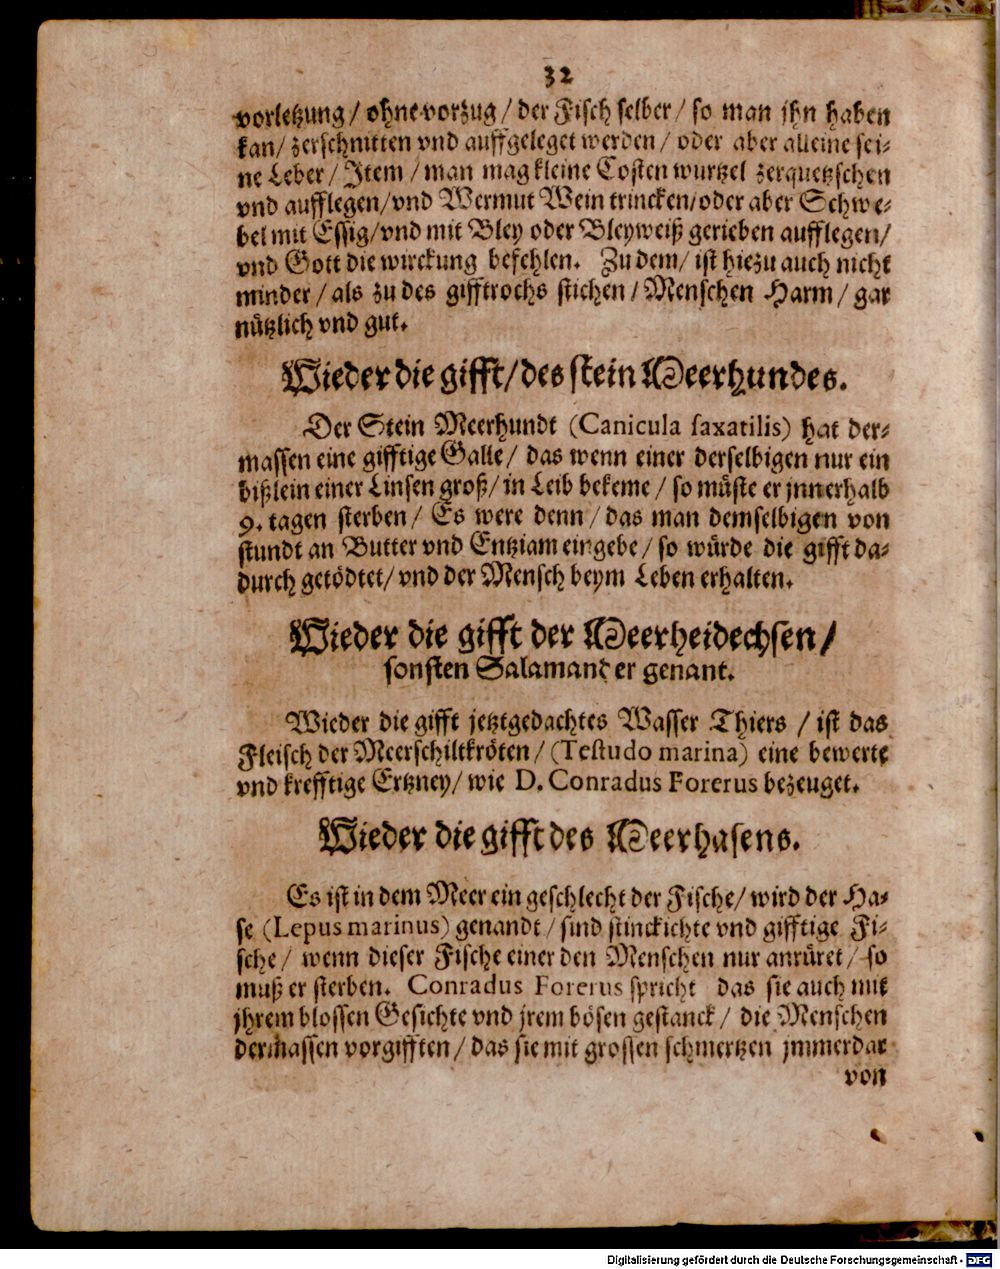 32
vorletzung / ohne vorzug / der Fisch selber / so man jhn haben
kan / zerschnitten vnd auffgeleget werden / oder aber alleine sei-
ne Leber / Item / man mag kleine Costen wurtzel zerquetzschen
vnd aufflegen / vnd Wermut Wein trincken / oder aber Schwe-
bel mit Essig / vnd mit Bley oder Bleyweiß gerieben aufflegen /
vnd Gott die wirckung befehlen. Zu dem / ist hiezu auch nicht
minder / als zu des gifftrochs stichen / Menschen Harm / gar
nützlich vnd gut.
Wieder die gifft / des stein Meerhundes.
Der Stein Meerhundt (Canicula saxatilis) hat der-
massen eine gifftige Galle / das wenn einer derselbigen nur ein
bißlein einer Linsen groß / in Leib bekeme / so müste er jnnerhalb
9. tagen sterben / Es were denn / das man demselbigen von
stundt an Butter vnd Entziam eingebe / so würde die gifft da-
durch getödtet / vnd der Mensch beym Leben erhalten.
Wieder die gifft der Meerheidechsen /
sonsten Salamander genant.
Wieder die gifft jetztgedachtes Wasser Thiers / ist das
Fleisch der Meerschiltkröten / (Testudo marina) eine bewerte
vnd krefftige Ertzney / wie D. Conradus Forerus bezeuget.
Wieder die gifft des Meerhasens.
Es ist in dem Meer ein geschlecht der Fische / wird der Ha-
se (Lepus marinus) genandt / sind stinckichte vnd gifftige Fi-
sche / wenn dieser Fische einer den Menschen nur anrüret / so
muß er sterben. Conradus Forerus spricht das sie auch mit
jhrem blossen Gesichte vnd jrem bösen gestanck / die Menschen
dermassen vorgifften / das sie mit grossen schmertzen jmmerdar
von
Digitalisierung gefördert durch die Deutsche Forschungsgemeinschaft - DFG